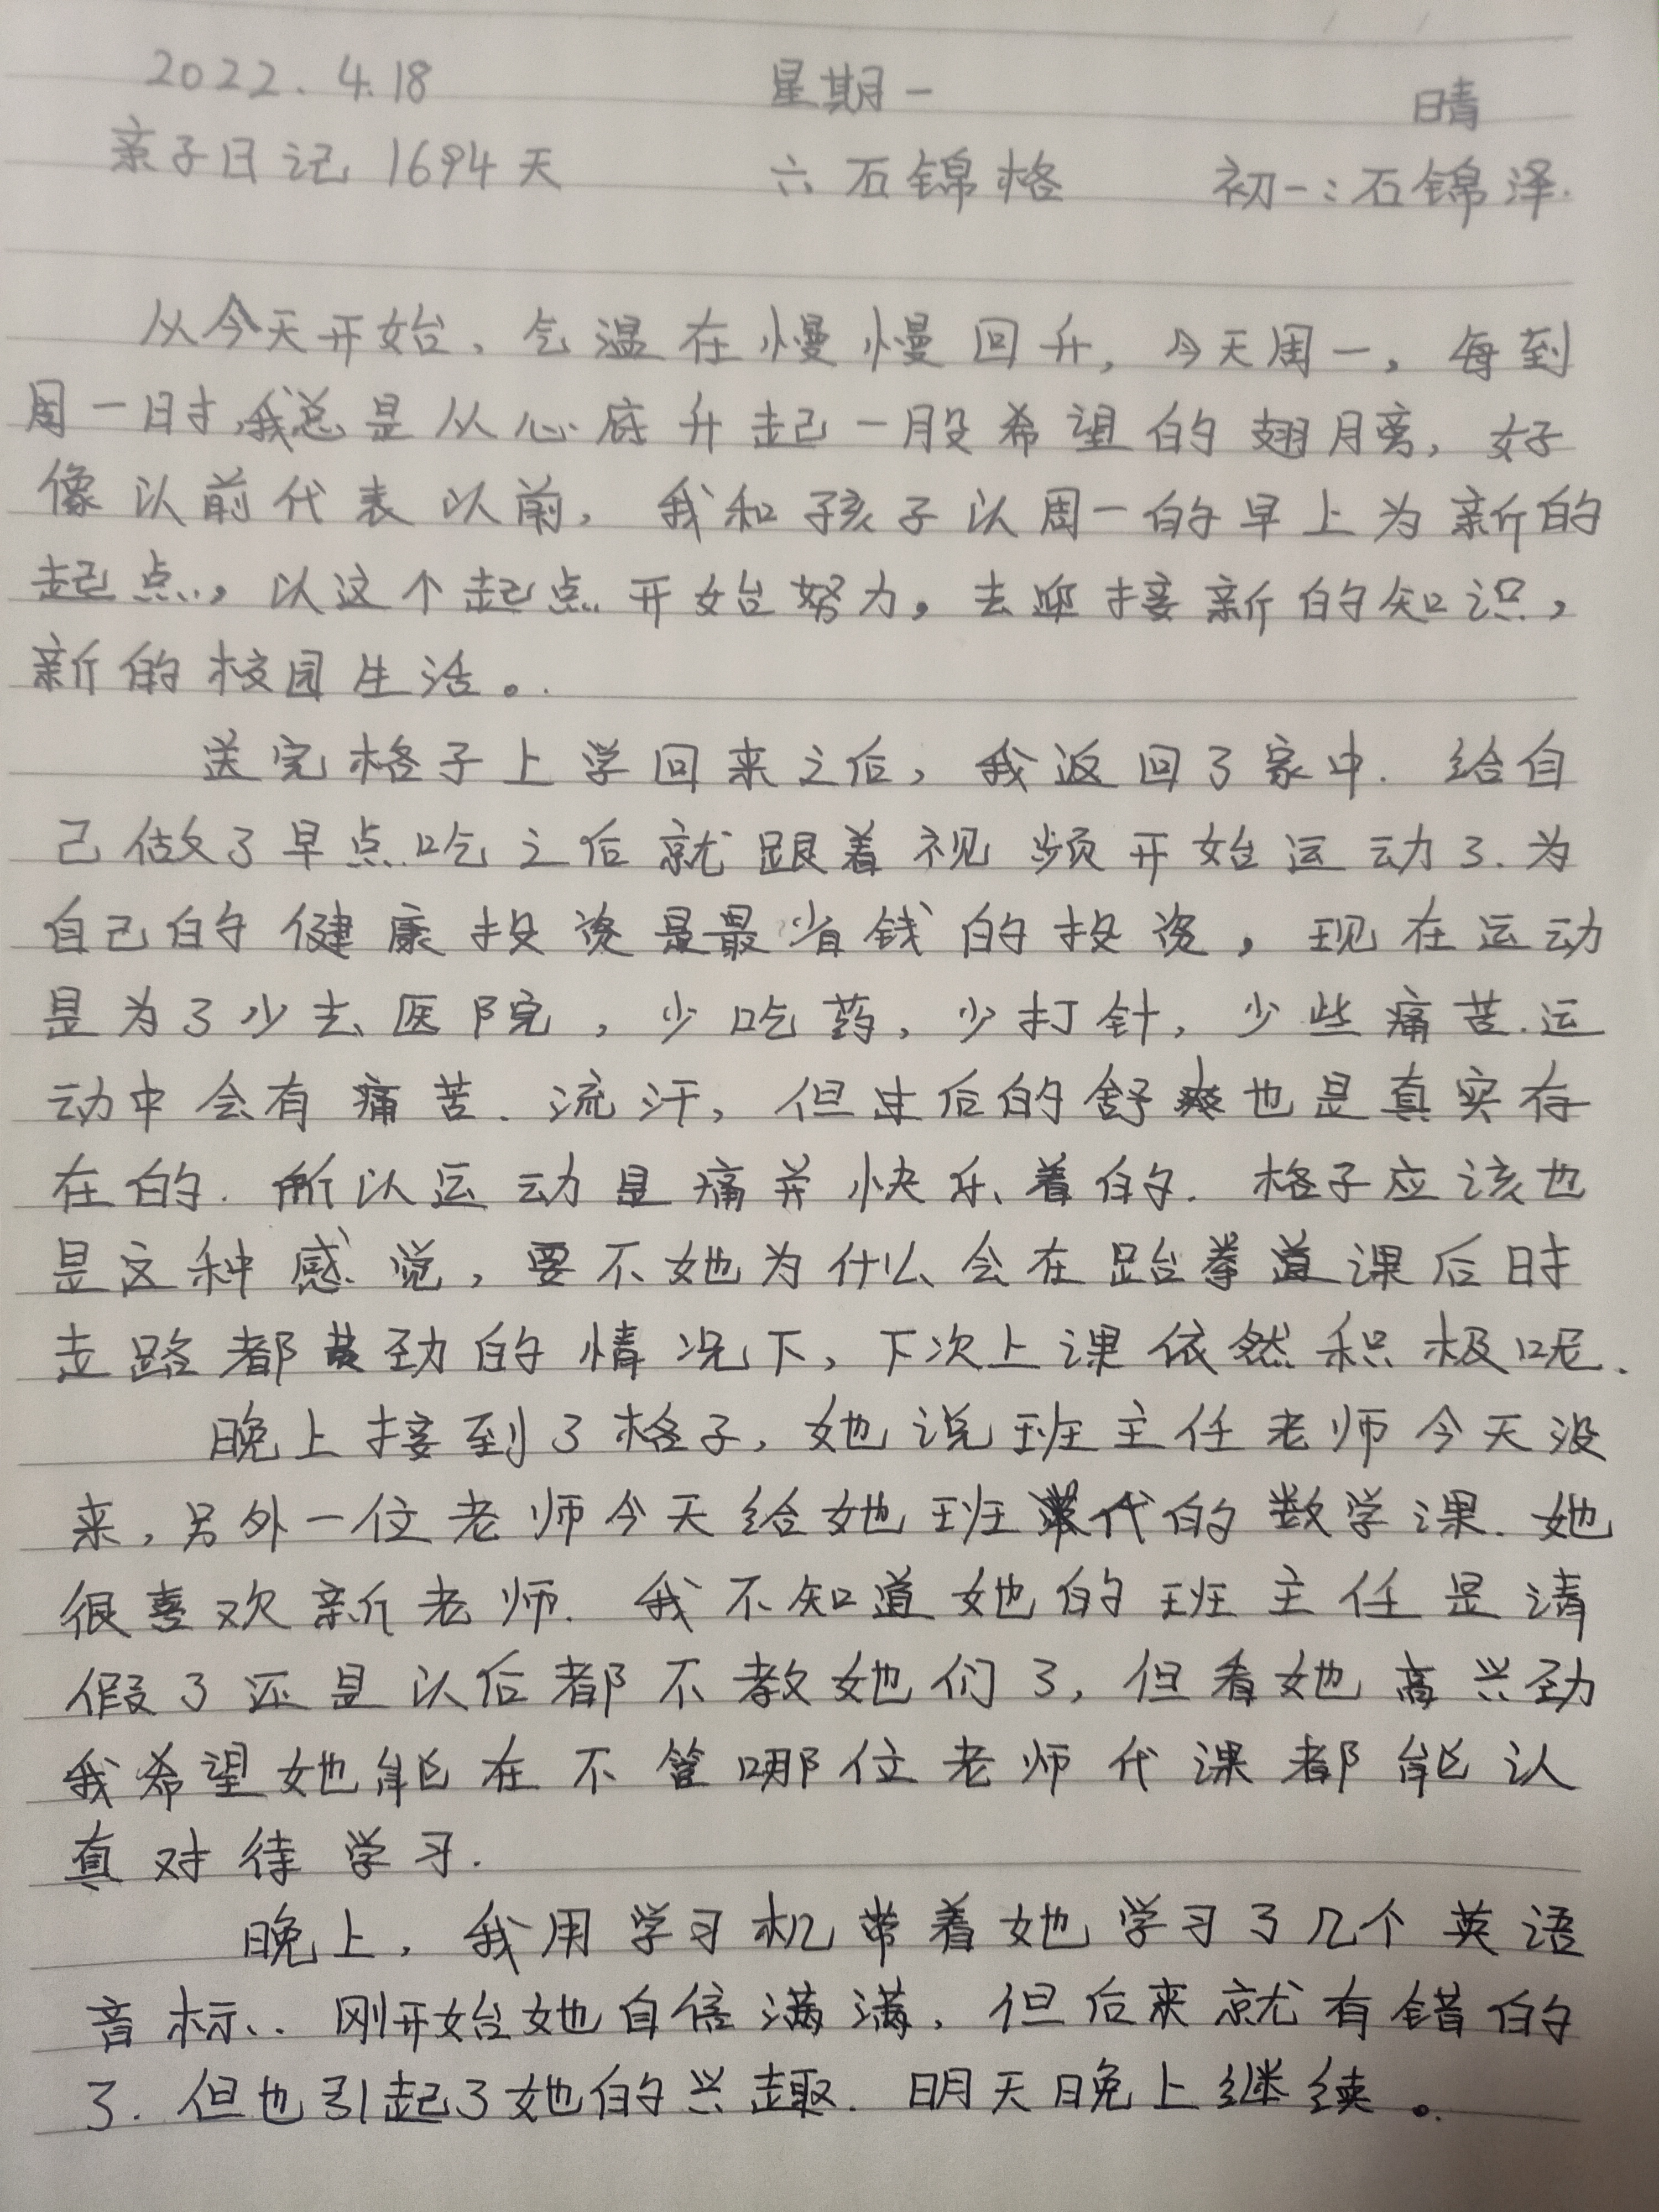 2022.4.18 星期一 晴
亲子日记1694天 六石锦格 初一:石锦泽.
从今天开始,气温在慢慢回升,今天周一,每到
周一时,我总是从心底升起一股希望的翅膀,好
像以前代表以前,我和孩子以周一的早上为新的
起点,以这个起点开始努力,去迎接新的知识,
新的校园生活。
送完格子上学回来之后,我返回了家中.给自
己做了早点.吃之后就跟着视频开始运动了.为
自己的健康投资是最省钱的投资,现在运动
是为了少去医院,少吃药,少打针,少些痛苦.运
动中会有痛苦.流汗,但过后的舒爽也是真实存
在的.所以运动是痛并快乐着的.格子应该也
是这种感觉,要不她为什么会在跆拳道课后时
走路都费劲的情况下,下次上课依然积极呢.
晚上接到了格子,她说班主任老师今天没
来,另外一位老师今天给她班代的数学课.她
很喜欢新老师.我不知道她的班主任是请
假了还是以后都不教她们了,但看她高兴劲
我希望她能在不管哪位老师代课都能认
真对待学习.
晚上,我用学习机带着她学习了几个英语
音标.刚开始她自信满满,但后来就有错的
了.但也引起了她的兴趣.明天晚上继续。